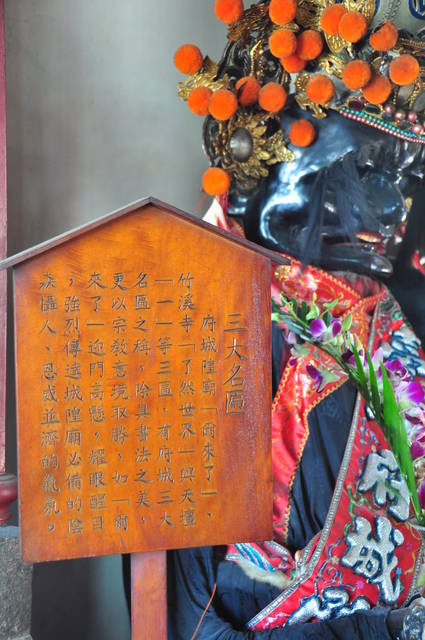 三大名匾
府城隍廟「爾來了」、
竹溪寺「了然世界」與天壇
「一」等三匾，有府城三大
名匾之稱，除具書法之美，
更以宗教意境取勝，如「爾
來了」迎門高懸，耀眼醒目
，強烈傳達城隍廟必備的陰
森懾人、恩威並濟的氣氛。
府城